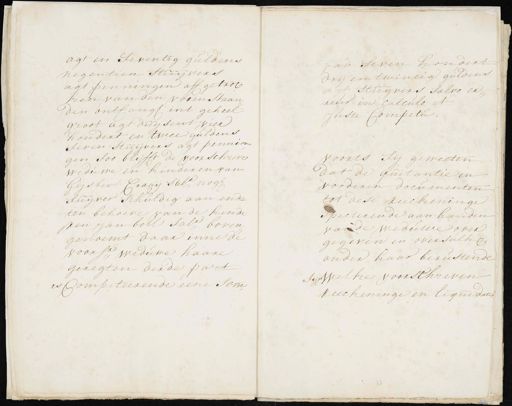 agt en Seventig guldens
negentien Stuyvers
agt penningen off getrocken
van den voorenstaan
den ontfangst, in 't geheel
groot agt duysent vier
hondert en twee guldens
Seven Stuyvers agt pennin
gen Soo blyfft de voorschreve
weduwe en kinderen van
Gysbert
Schuldig aan ende
ten behoeve van de kinde
ren van
genoemt daar inne de
voors. weduwe haare
geregten derde part
Competeerende eene Som
ma Seven hondert
drij en twintig guldens
agt Stuyvers Salvo er
rore in Calculo et
juste Compoto.
voorts Sy geweeten
dat de quitantie en
vordere documenten
tot dese reekeninge
specteerende aan handen
van de weduwe over
gegeven en oversulks
onder haar berustende
Welke voorschreven
reekeninge en liquidatie